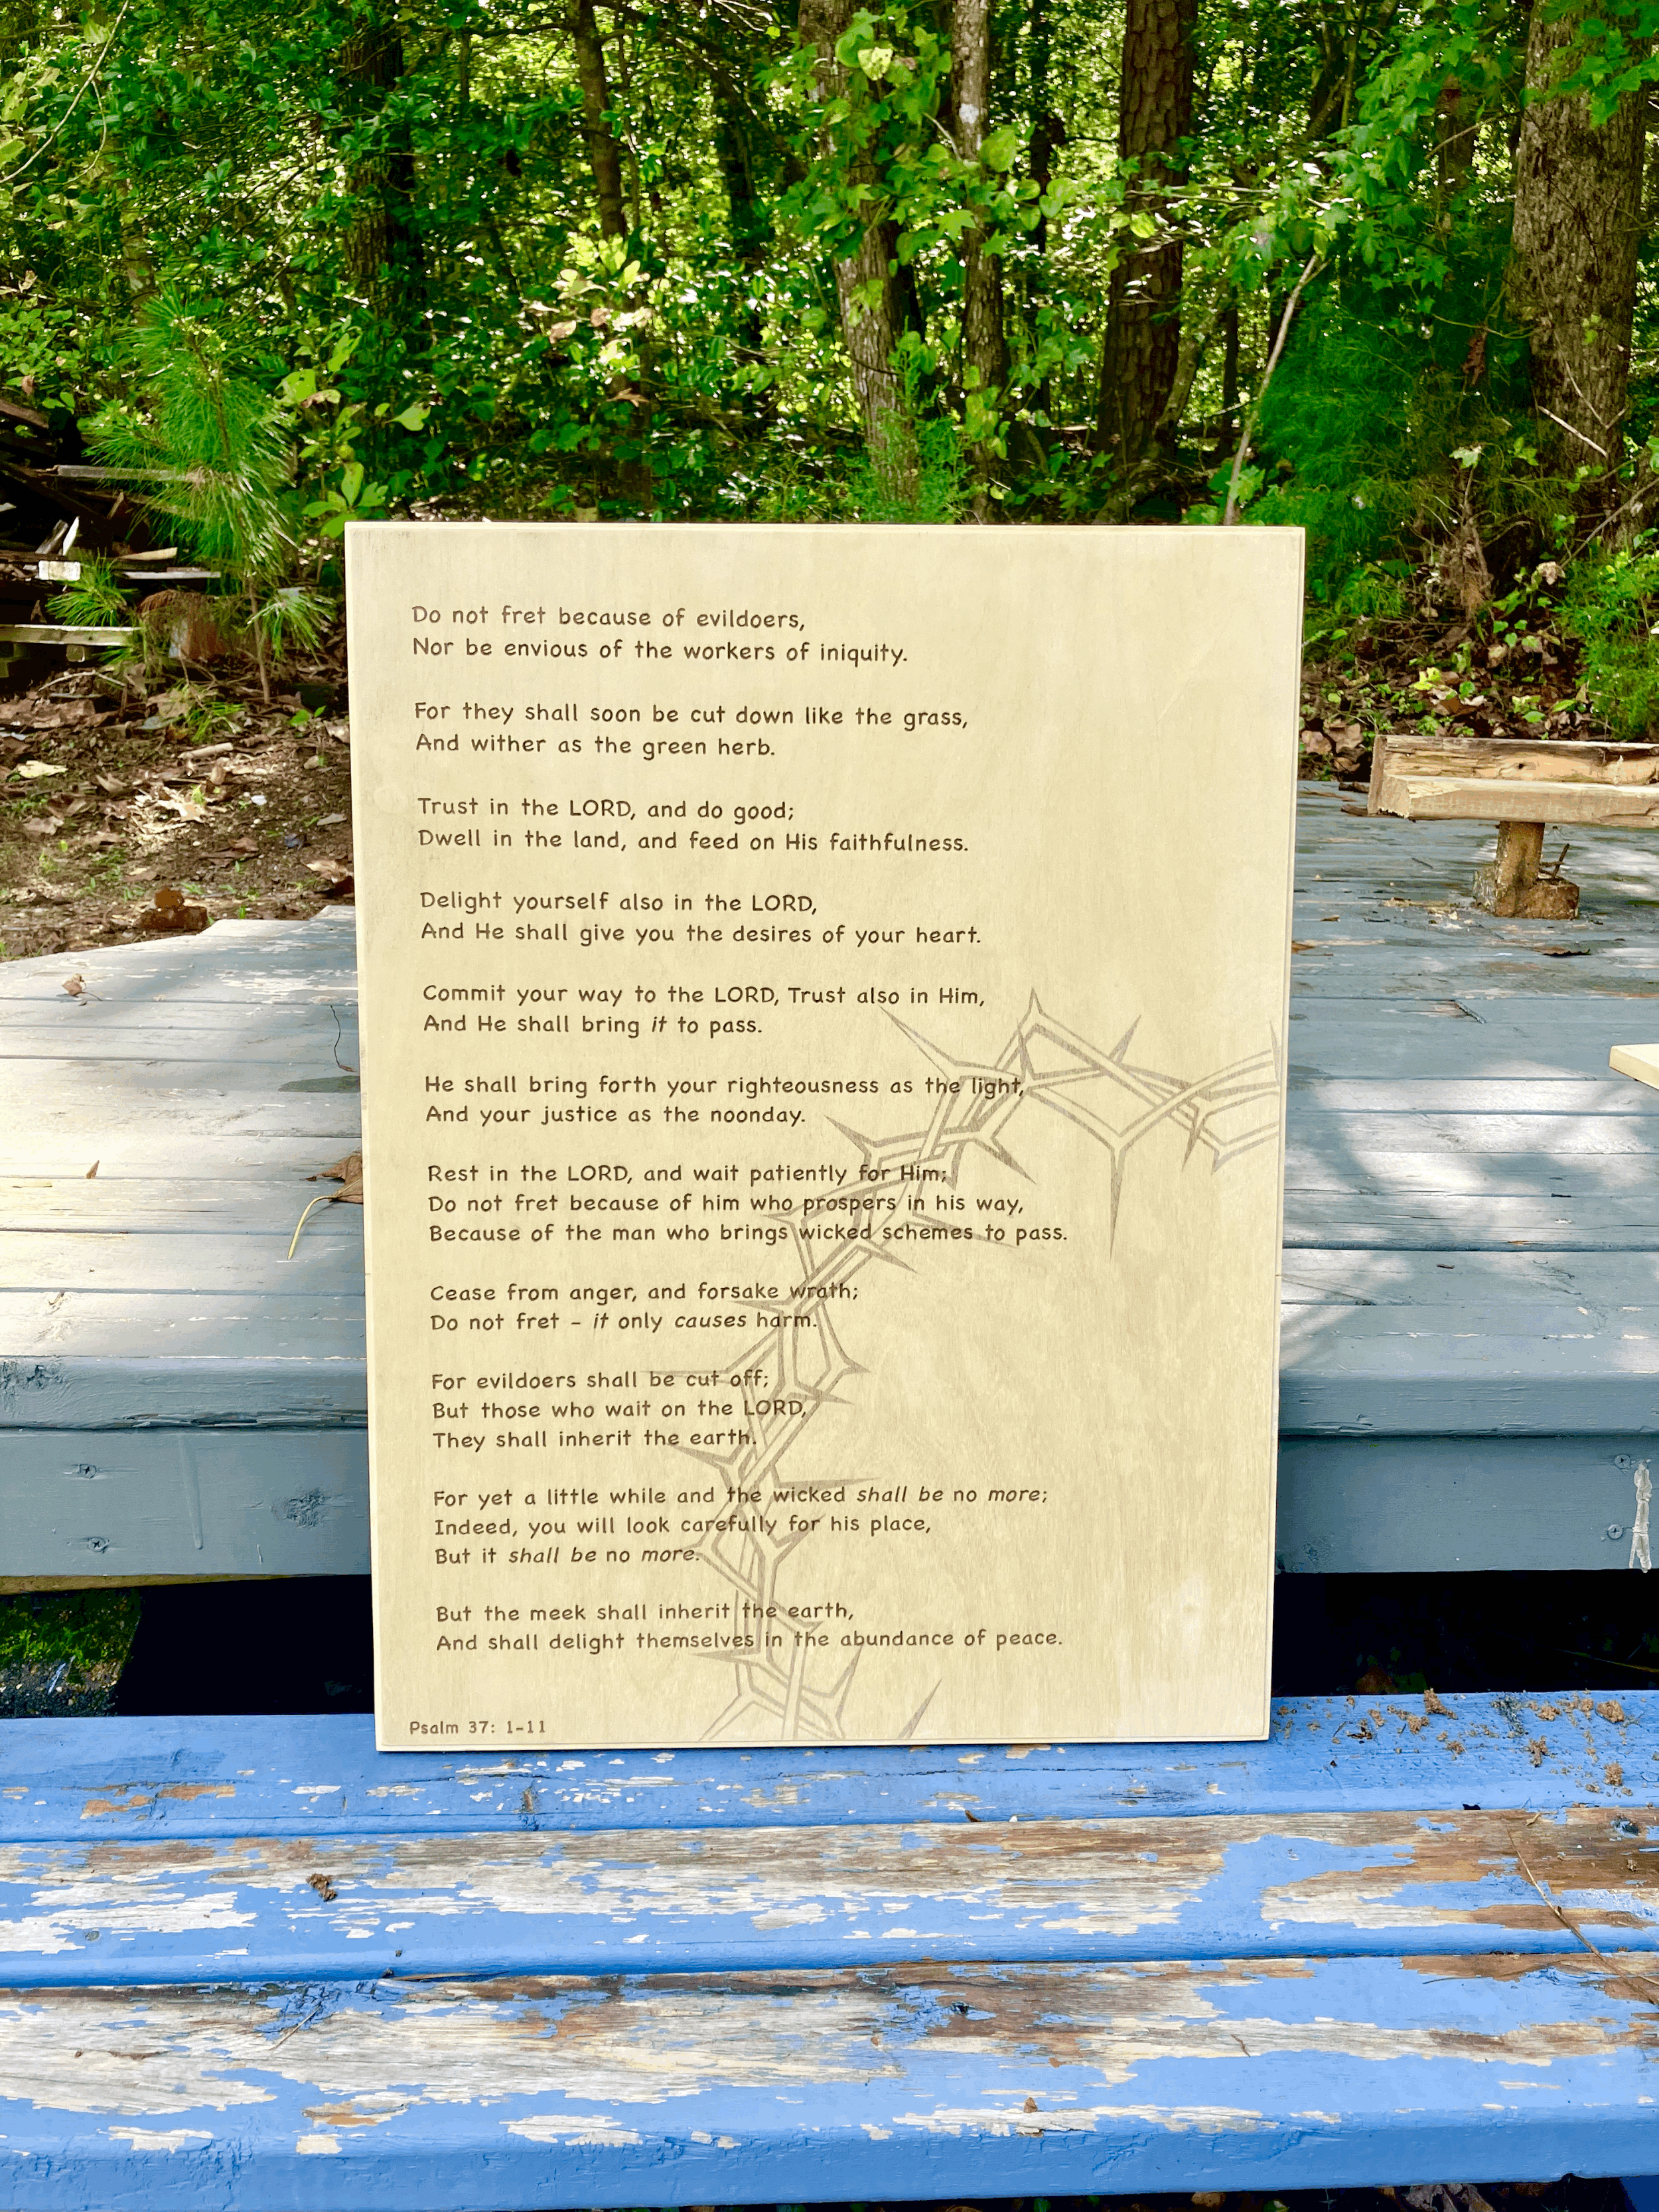 Do not fret because of evildoers,
Nor be envious of the workers of iniquity.
For they shall soon be cut down like the grass,
And wither as the green herb.
Trust in the LORD, and do good;
Dwell in the land, and feed on His faithfulness.
Delight yourself also in the LORD,
And He shall give you the desires of your heart.
Commit your way to the LORD, Trust also in Him,
And He shall bring it to pass.
He shall bring forth your righteousness as the light,
And your justice as the noonday.
Rest in the LORD, and wait patiently for Him;
Do not fret because of him who prospers in his way,
Because of the man who brings wicked schemes to pass.
Cease from anger, and forsake wrath;
Do not fret - it only causes harm.
For evildoers shall be cut off;
But those who wait on the LORD,
They shall inherit the earth.
For yet a little while and the wicked shall be no more;
Indeed, you will look carefully for his place,
But it shall be no more.
But the meek shall inherit the earth,
And shall delight themselves in the abundance of peace.
Psalm 37: 1-11